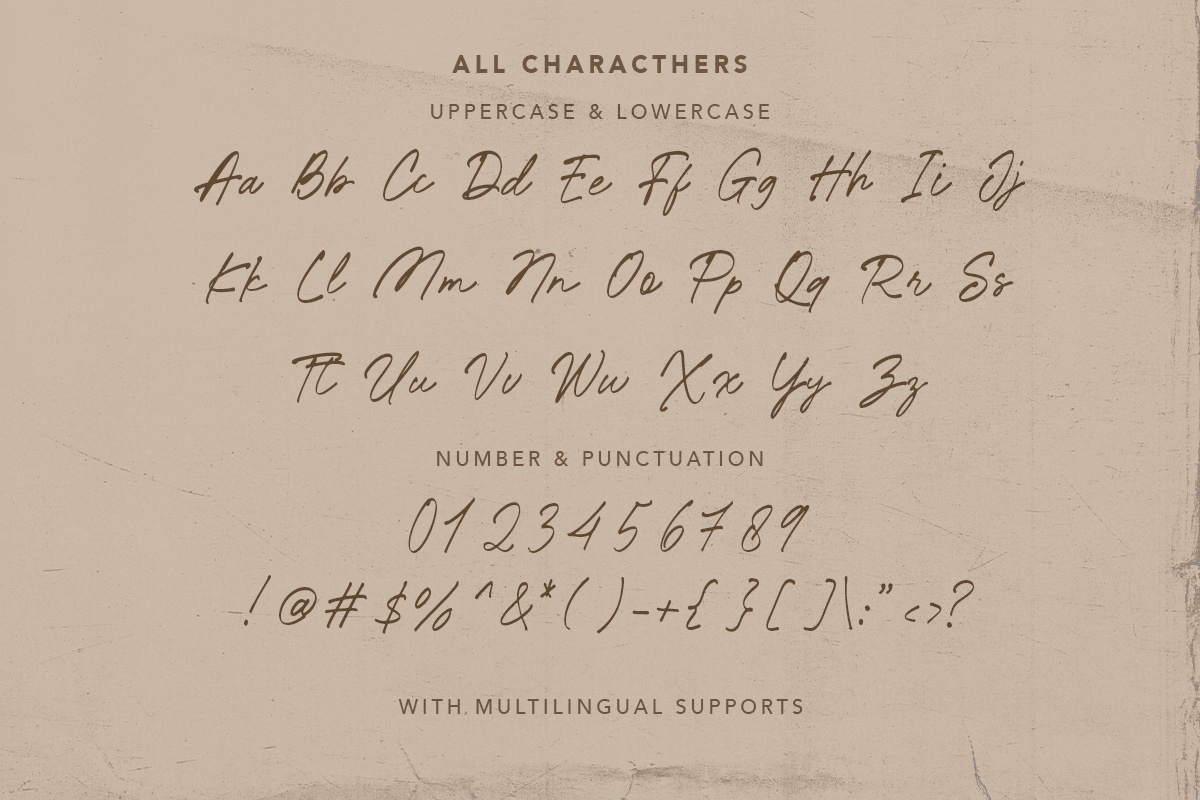 ALL CHARACTHERS
UPPERCASE & LOWERCASE
Aa Bb Cc Dd Ee Ff Gg Hh Ii Jj
Kk Ll Mm Nn Oo Pp Qq Rr Ss
Tt Uu Vv Ww Xx Yy Zz
NUMBER & PUNCTUATION
0 1 2 3 4 5 6 7 8 9
! @ # $ % ^ & * ( ) - + { } [ ] \ : ” < > ?
WITH MULTILINGUAL SUPPORTS